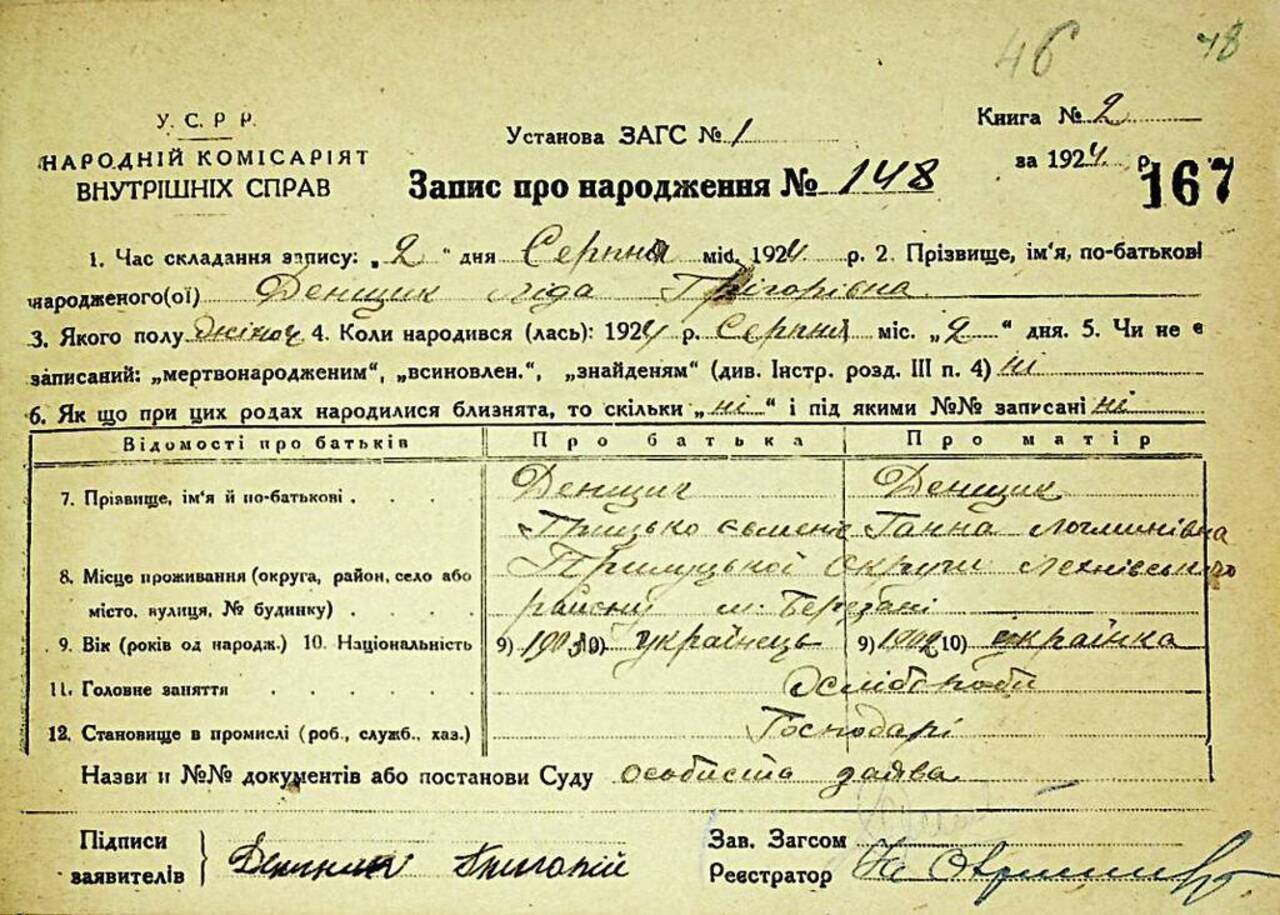 46 48
У. С. Р Р.
НАРОДНІЙ КОМІСАРІЯТ
ВНУТРІШНІХ СПРАВ
Установа ЗАГС № 1
Книга № 2
за 1924 р.
Запис про народження № 148
167
1. Час складання запису: „2“ дня Серпня міс. 1924 р. 2. Прізвище, ім'я, по-батькові
народженого(ої) Денщик Ліда Грігорівна
3. Якого полу жіноч 4. Коли народився (лась): 1924 р. Серпня міс. „2“ дня. 5. Чи не є
записаний: „мертвонародженим“, „всиновлен.“, „знайденям“ (див. Інстр. розд. III п. 4) ні
6. Як що при цих родах народилися близнята, то скільки „ні“ і під якими №№ записані ні
Відомості про батьків Про батька Про матір
7. Прізвище, ім'я й по-батькові . . . . Денщик Денщик
Грицько Ганна Логминівна
8. Місце проживання (округа, район, село або Прилуцької Округи
місто, вулиця, № будинку) . . . . району м. Березані
9. Вік (років од народж.) 10. Національність 9) 1903 10) українець 9) 1902 10) українка
11. Головне заняття . . . . . . Хлібороби
12. Становище в промислі (роб., служб., хаз.) Господарі
Назви и №№ документів або постанови Суду особиста заява
Підписи
заявителів
Денщик Григорій
Зав. Загсом
Реєстратор